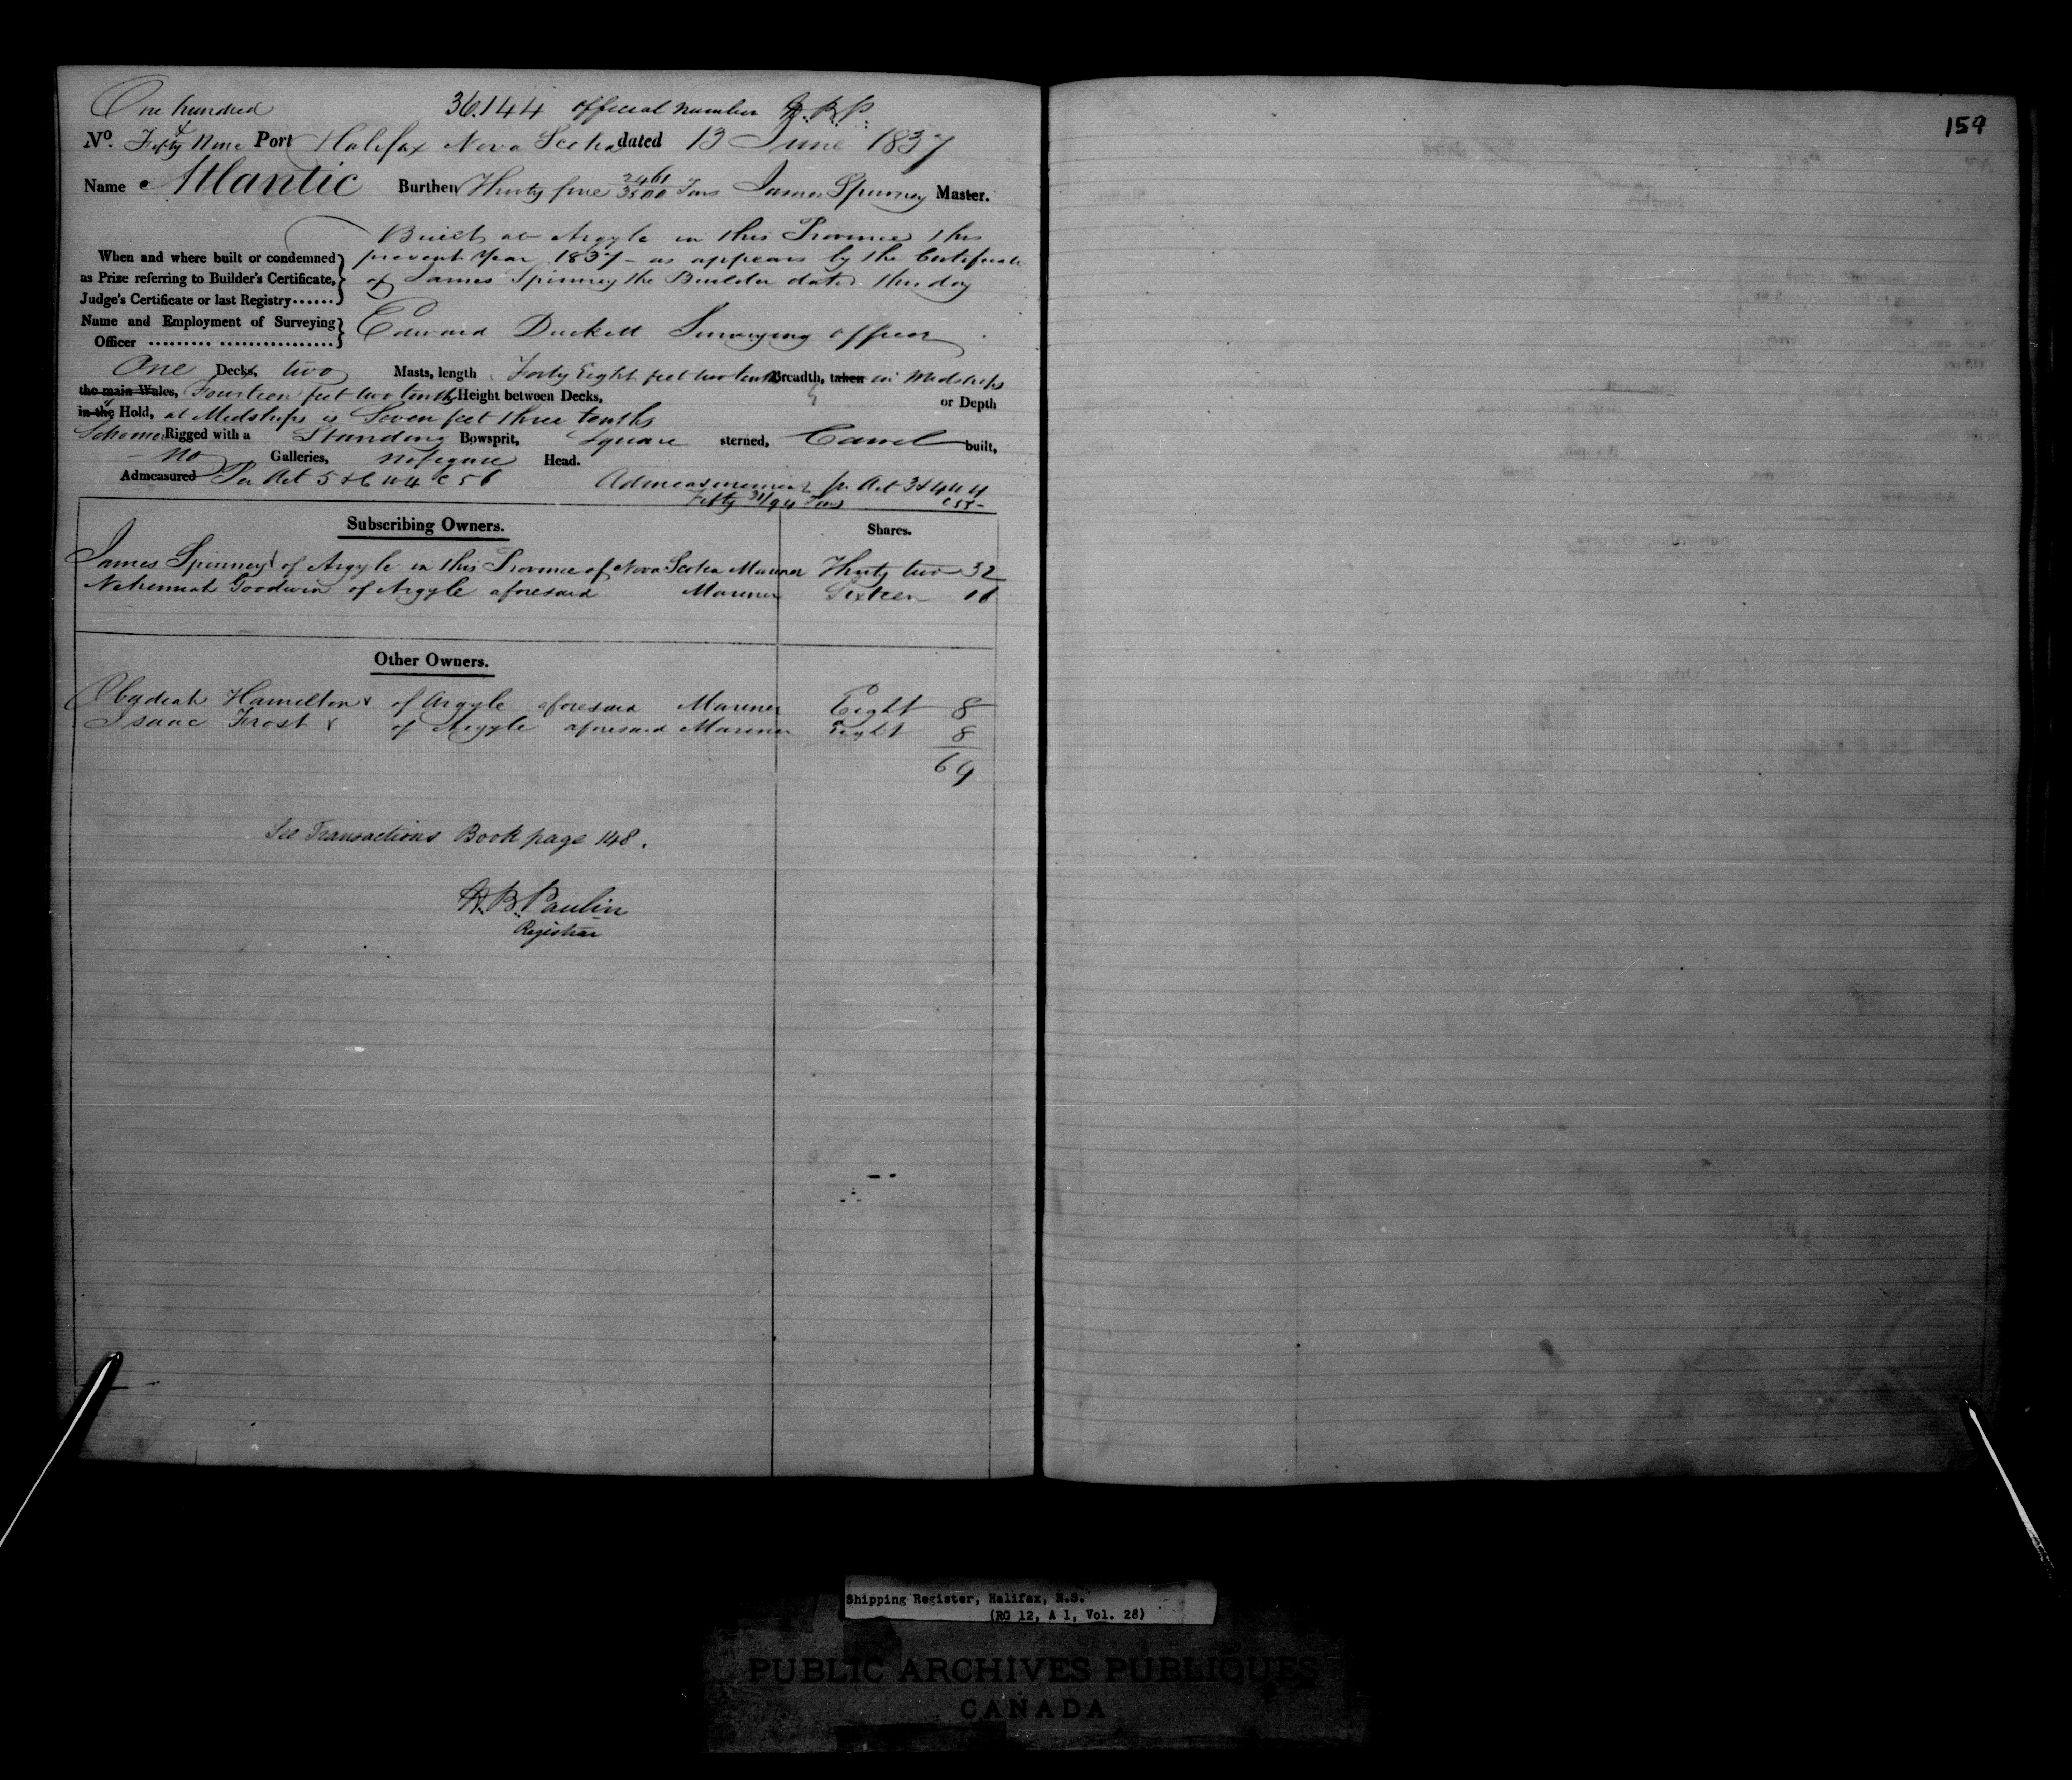 One hundred 36.144 official number
& 
No. Fifty Nine Port Halifax Nova Scotia dated 13 June 1837
Name Atlantic Burthen Thirty five 2461/3500 Tons James Spinney Master.
Built at Argyle in this Province this
When and where built or condemned present Year 1837 - as appears by the Certificate
as Prize referring to Builder's Certificate, of James Spinney the Builder dated this day
Judge's Certificate or last Registry......
Name and Employment of Surveying Edward Duckett Surveying officer
Officer ......... ................
One Decks, two Masts, length Forty Eight feet two tenths Breadth, taken in Midships
the main Wales, Fourteen feet two tenths Height between Decks, or Depth
in the Hold, at Midships is Seven feet three tenths
Schooner Rigged with a Standing Bowsprit, Square sterned, Carvel built,
no Galleries, no figure Head.
Admeasured Per Act 5 & 6 W 4 C 56 Admeasurement pr Act 3 & 4 W 4
Fifty 31/94 Tons C 55-
Subscribing Owners. Shares.
James Spinney of Argyle in this Province of Nova Scotia Mariner Thirty two 32
Nehemiah Goodwin of Argyle aforesaid Mariner Sixteen 16
Other Owners.
Obadiah Hamilton x of Argyle aforesaid Mariner Eight 8
Isaac Frost x of Argyle aforesaid Mariner Eight 8
64
See Transactions Book page 148.
B. Paulin
Registrar
159
Shipping Register, Halifax, N.S.
(RG 12, A 1, Vol. 28)
PUBLIC ARCHIVES PUBLIQUES
CANADA